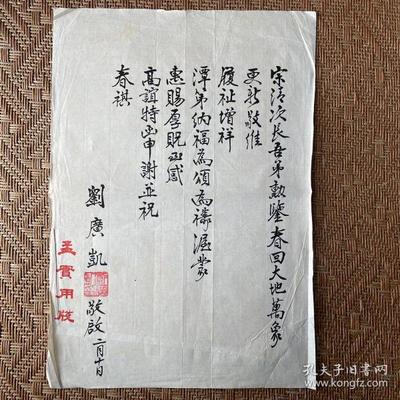 宗清次長吾弟勳鑒春回大地萬象
更新敬維
履祉增祥
潭第納福為頌為禱渥蒙
惠賜厚貺至感
高誼特函申謝並祝
春祺
劉廣凱
敬啟 二月十日
孔夫子旧书网
www.kongfz.com